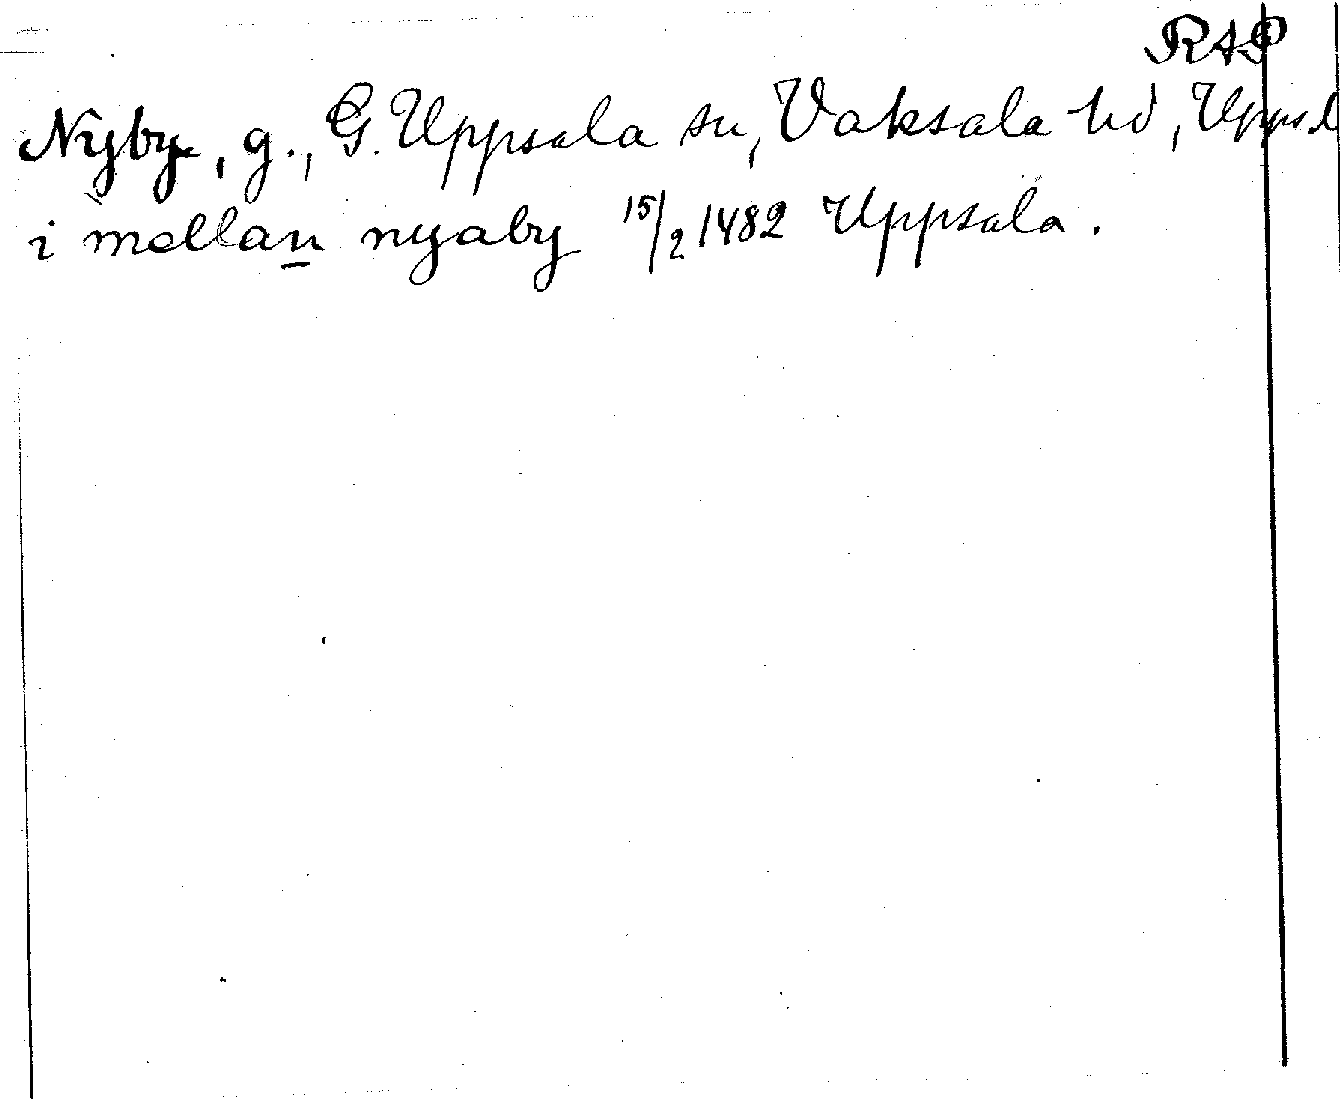 RAP
Nyby, g., G. Uppsala sn, Vaksala hd, Upps.l
i mellan nyaby 15/2 1482 Uppsala.